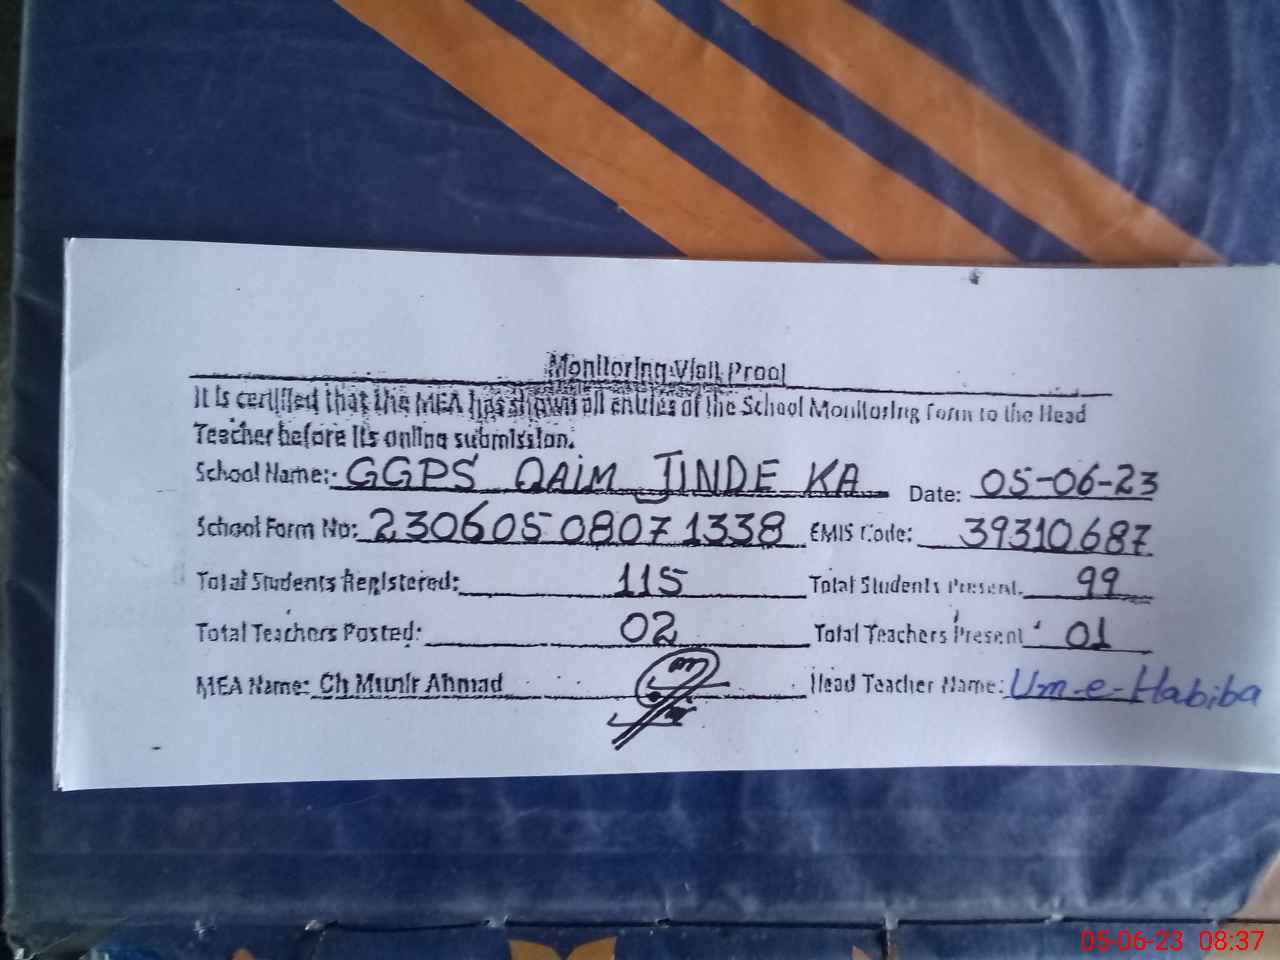 Monitoring Visit Proof
It is certified that the MEA has shown all entries of the School Monitoring Form to the Head
Teacher before its online submission.
School Name: GGPS QAIM JINDE KA Date: 05-06-23
School Form No: 230605 0807 1338 EMIS Code: 39310687
Total Students Registered: 115 Total Students Present. 99
Total Teachers Posted: 02 Total Teachers Present 01
MEA Name: Ch Munir Ahmad Head Teacher Name: Um-e-Habiba
05-06-23 08:37